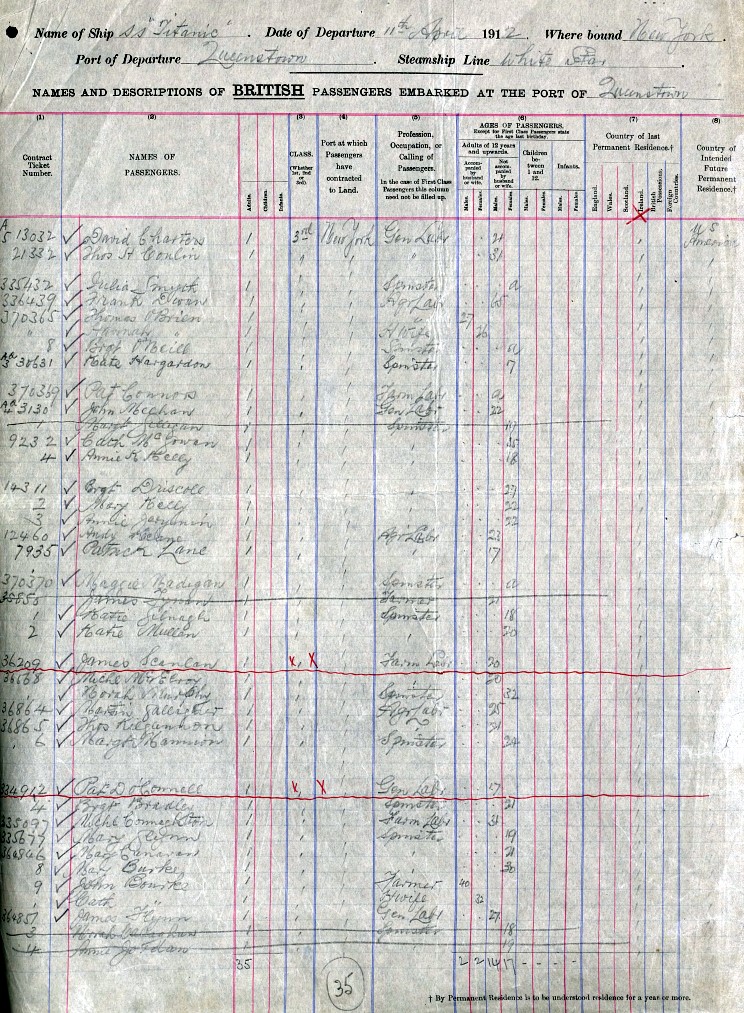 Name of Ship SS "Titanic". Date of Departure 11th April 1912. Where bound New York.
Port of Departure Queenstown Steamship Line White Star.
NAMES AND DESCRIPTIONS OF BRITISH PASSENGERS EMBARKED AT THE PORT OF Queenstown
(1) (2) (3) (4) (5) (6) (7) (8)
Contract Ticket Number. NAMES OF PASSENGERS. CLASS. (Whether 1st, 2nd or 3rd) Port at which Passengers have contracted to Land. Profession, Occupation, or Calling of Passengers. In the case of First Class Passengers this column need not be filled up. AGES OF PASSENGERS. Except for First Class Passengers state the age last birthday. Country of last Permanent Residence.† Country of Intended Future Permanent Residence.†
Adults of 12 years and upwards. Children between 1 and 12. Infants.
Accompanied by husband or wife. Not accompanied by husband or wife.
Adults. Children Infants Males. Females. Males. Females. Males. Females. Males. Females. England. Wales. Scotland. Ireland. British Possessions. Foreign Countries.
A/5 13032 ✓ David Chartors 1 3rd New York Gen Labr 21 U S America
21332 ✓ Thos H Conlin 1 " 31
335432 ✓ Julia Smyth 1 Spinster a
336439 ✓ Frank Dwan 1 Agr Labr 65
370365 ✓ Thomas O'Brien 1 " 27
" ✓ Hannah " 1 H Wife 26
8 ✓ Brgt O'Neill 1 Spinster a
30631 ✓ Kate Hargardon 1 Spinster 17
370369 ✓ Pat Connors 1 Farm Labr a
3130 ✓ John Meehan 1 Gen Labr 22
1 Margt 1 Spinster
9232 ✓ Cath McGowan 1 35
4 ✓ Annie K Kelly 1 18
14311 ✓ Brgt Driscoll 1 27
2 ✓ Mary Kelly 1 22
3 ✓ Annie 1 22
12460 ✓ Andy Keane 1 Agr Labr 23
7935 ✓ Patrick Lane 1 " 17
370370 ✓ Maggie Madigan 1 Spinster a
35850 James 1 Farmer 21
1 ✓ Katie Gilnagh 1 Spinster 18
2 ✓ Katie Mullen 1 " 20
36209 ✓ James Scanlan 1 x x Farm Labr 20
36568 ✓ Michl McElroy 1 20
✓ Norah Murphy 1 Spinster 32
36864 ✓ Martin Gallagher 1 Agr Labr 25
36865 ✓ Thos Kilgannon 1 21
6 ✓ Margt Mannion 1 Spinster 24
334912 ✓ Pat D O'Connell 1 x x Gen Labr 17
4 ✓ Brgt Bradley 1 Spinster 21
335097 ✓ Michl Connaghton 1 Farm Labr 31
335677 ✓ Mary Glynn 1 Spinster 19
364846 ✓ Mary Canavan 1 21
8 ✓ Mary Burke 1 30
9 ✓ John Bourke 1 Farmer 40
" ✓ Cath " 1 H Wife 32
364851 ✓ James Flynn 1 Gen Labr 27
3 Norah 1 Spinster 18
4 Annie Jordan 1 19
35 2 2 14 17 - - - -
35
† By Permanent Residence is to be understood residence for a year or more.